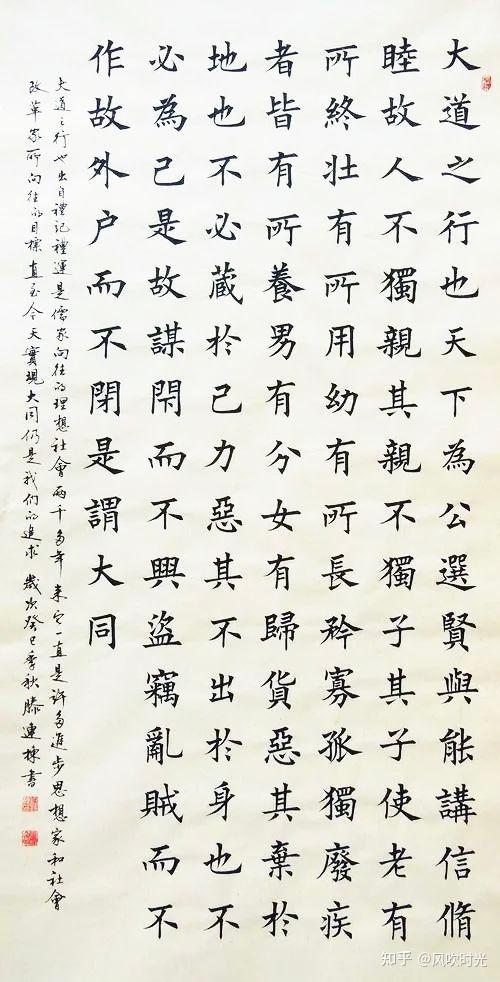 大道之行也天下為公選賢與能講信脩
睦故人不獨親其親不獨子其子使老有
所終壯有所用幼有所長矜寡孤獨廢疾
者皆有所養男有分女有歸貨惡其棄於
地也不必藏於己力惡其不出於身也不
必為己是故謀閇而不興盜竊亂賊而不
作故外户而不閉是謂大同
大道之行也出自禮記禮運是儒家向往的理想社會兩千多年來它一直是許多進步思想家和社會
改革家所向往的目標直至今天實現大同仍是我們的追求 歲次癸巳季秋滕連棟書
知乎 @风吹时光